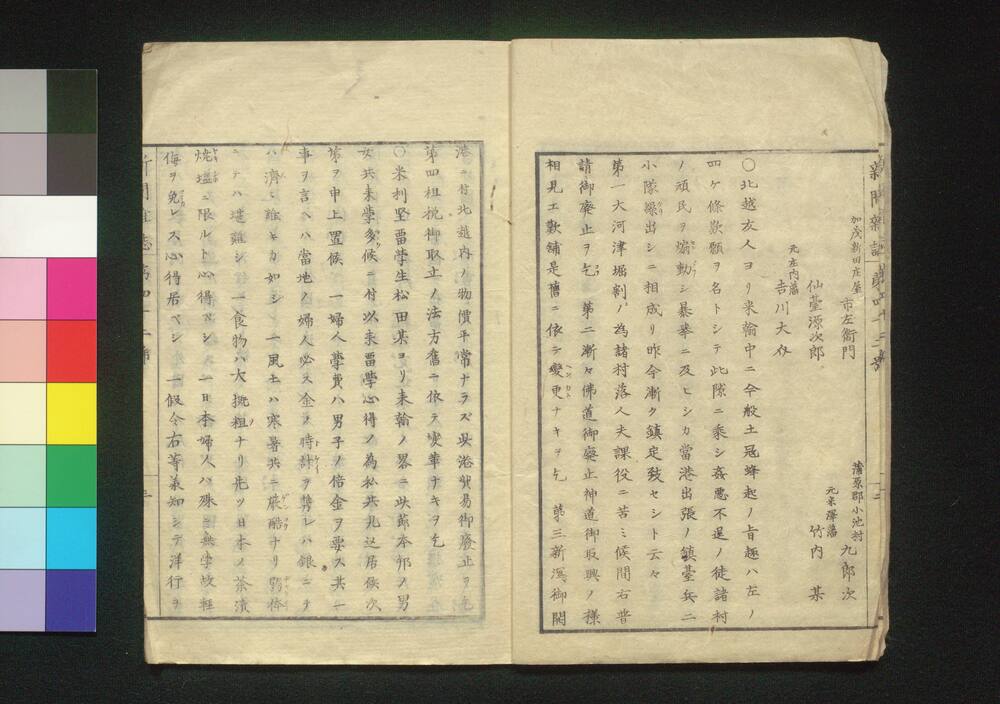 新聞雑誌 第四十二号
加茂新田庄屋 市左衛門
蒲原郡小池村 九郎次
仙臺源次郎
元米澤藩 竹内 某
元庄内藩 吉川大介
〇北越友人ヨリ来翰中ニ今般土冦蜂起ノ旨趣ハ左ノ
四ケ條歎願ヲ名トシテ此隙ニ乘シ姦悪不逞ノ徒諸村
ノ頑民ヲ煽動シ暴挙ニ及ヒシカ當港出張ノ鎮臺兵二
小隊繰出シニ相成リ昨今漸ク鎮定致セシト云々
第一大河津堀割ノ為諸村落人夫課役ニ苦ミ候間右普
請御廃止ヲ乞 第二漸々佛道御廃止神道御取興ノ様
相見エ歎鋪是舊ニ依テ變更ナキヲ乞 第三新潟御開
港ニ付北越内ノ物價平常ナラズ此港貿易御廃止ヲ乞
第四租税御取立ノ法方舊ニ依テ変革ナキヲ乞
〇米利堅留学生松田某ヨリ来翰ノ畧ニ此節本邦ノ男
女共来學多候ニ付以来留學心得ノ為私共見込居候次
第ヲ申上置候 一婦人學費ハ男子ノ倍金ヲ要ス其一
事ヲ言ヘハ當地ノ婦人必ス金ノ時計ヲ携レハ銀ニテ
ハ濟ミ難キカ如シ 一風土ハ寒暑共ニ厳酷ナリ
ニテハ堪難シ 一食物ハ大抵粗ナリ先ツ日本ノ茶漬
焼塩ニ限ルト心得ベシ 一日本婦人ハ殊ニ無学故軽
侮ヲ免レス心得居ベシ 一假令右等義知シテ洋行ヲ
新聞雑誌 第四十二号